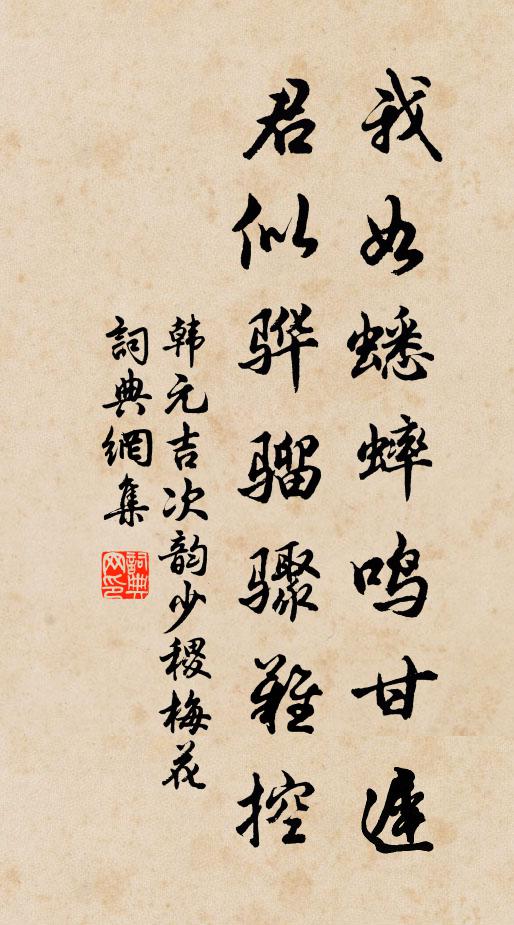 我如蟋蟀鸣甘遲
君似骅骝骤難控
韩元吉次韵少稷梅花
詞典網集
詞典网印